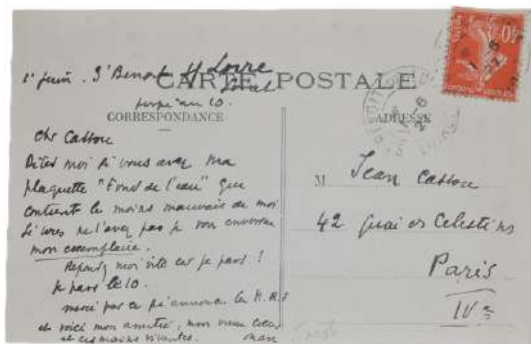 1er juin. St Benoit s/ Loire
Loiret
jusqu'au 10.
CARTE POSTALE
CORRESPONDANCE
ADRESSE
cher Cassou
Dites moi si vous avez ma
plaquette "Fond de l'eau" que
contient le moins mauvais de moi
Si vous ne l'avez pas je vous enverrai
mon exemplaire.
Répondez moi vite car je pars !
Je pars le 10.
merci par ce qu'annonce la N.R.F
et voici mon amitié, mon vieux cœur
et ces mains vivantes.
Max
M Jean Cassou
42 quai des Celestins
Paris
IVe